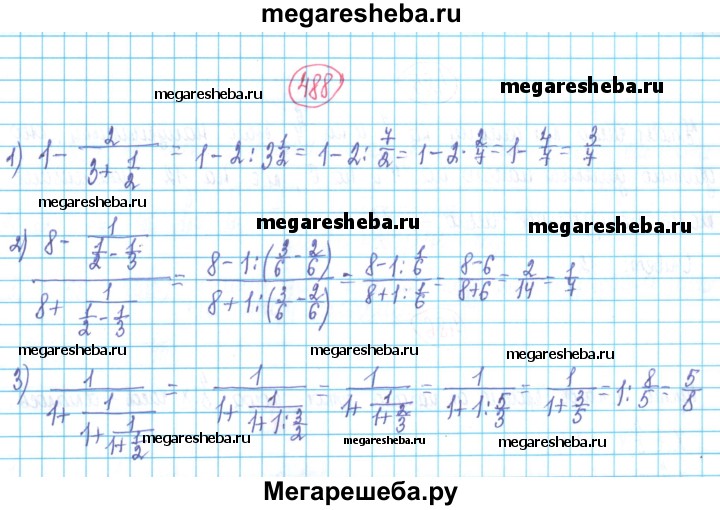 megaresheba.ru
488
megaresheba.ru
megaresheba.ru
1) 1 - 2/(3 + 1/2) = 1 - 2 : 3 1/2 = 1 - 2 : 7/2 = 1 - 2 · 2/7 = 1 - 4/7 = 3/7
megaresheba.ru
megaresheba.ru
megaresheba.ru
2) (8 - 1/(1/2 - 1/3))/(8 + 1/(1/2 - 1/3)) = (8 - 1 : (3/6 - 2/6))/(8 + 1 : (3/6 - 2/6)) = (8 - 1 : 1/6)/(8 + 1 : 1/6) = (8 - 6)/(8 + 6) = 2/14 = 1/7
megaresheba.ru
megaresheba.ru
megaresheba.ru
3) 1/(1 + 1/(1 + 1/(1 + 1/2))) = 1/(1 + 1/(1 + 1 : 3/2)) = 1/(1 + 1/(1 + 2/3)) = 1/(1 + 1 : 5/3) = 1/(1 + 3/5) = 1 : 8/5 = 5/8
megaresheba.ru
megaresheba.ru
megaresheba.ru
Мегарешеба.ру